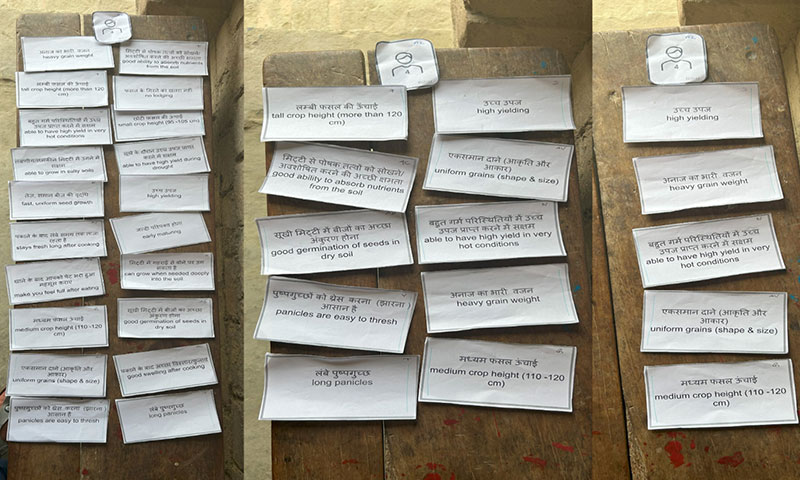 4
अनाज का भारी, वजन
heavy grain weight
लम्बी फसल की ऊंचाई
tall crop height (more than 120
cm)
बहुत गर्म परिस्थितियों में उच्च
उपज प्राप्त करने में सक्षम
able to have high yield in very
hot conditions
able to grow in salty soils
तेज, समान बीज की वृद्धि
fast, uniform seed growth
stays fresh long after cooking
खाने के बाद आपको पेट भरा हुआ
महसूस कराएं
make you feel full after eating
मध्यम फसल ऊंचाई
medium crop height (110 -120
cm)
एकसमान दाने (आकृति और
आकार)
uniform grains (shape & size)
पुष्पगुच्छों को थ्रेस करना (झारना)
आसान है
panicles are easy to thresh
मिट्टी से पोषक तत्वों को सोखने/
अवशोषित करने की अच्छी क्षमता
good ability to absorb nutrients
from the soil
फसल के गिरने का खतरा नहीं
no lodging
छोटी फसल की ऊंचाई
small crop height (95 -105 cm)
सूखे के दौरान उच्च उपज प्राप्त
करने में सक्षम
able to have high yield during
drought
उच्च उपज
high yielding
जल्दी परिपक्व होना
early maturing
मिट्टी में गहराई में बोने पर उग
सकता है
can grow when seeded deeply
into the soil
सूखी मिट्टी में बीजों का अच्छा
अंकुरण होना
good germination of seeds in
dry soil
good swelling after cooking
लंबे पुष्पगुच्छ
long panicles
4
लम्बी फसल की ऊंचाई
tall crop height (more than 120
cm)
मिट्टी से पोषक तत्वों को सोखने/
अवशोषित करने की अच्छी क्षमता
good ability to absorb nutrients
from the soil
सूखी मिट्टी में बीजों का अच्छा
अंकुरण होना
good germination of seeds in
dry soil
पुष्पगुच्छों को थ्रेस करना (झारना)
आसान है
panicles are easy to thresh
लंबे पुष्पगुच्छ
long panicles
उच्च उपज
high yielding
एकसमान दाने (आकृति और
आकार)
uniform grains (shape & size)
बहुत गर्म परिस्थितियों में उच्च
उपज प्राप्त करने में सक्षम
able to have high yield in very
hot conditions
अनाज का भारी, वजन
heavy grain weight
मध्यम फसल ऊंचाई
medium crop height (110 -120
cm)
4
उच्च उपज
high yielding
अनाज का भारी, वजन
heavy grain weight
बहुत गर्म परिस्थितियों में उच्च
उपज प्राप्त करने में सक्षम
able to have high yield in very
hot conditions
एकसमान दाने (आकृति और
आकार)
uniform grains (shape & size)
मध्यम फसल ऊंचाई
medium crop height (110 -120
cm)